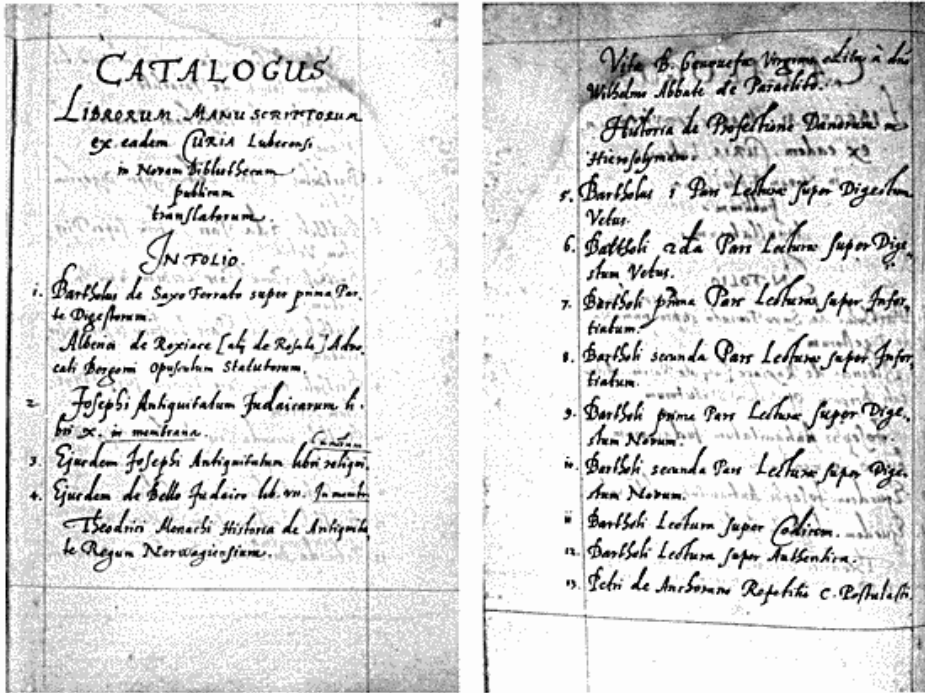 CATALOGUS
LIBRORUM MANUSCRIPTORUM
ex eadem CURIA Lubecensi
in Novam Bibliothecam
publicam
translatorum.
IN FOLIO.
1. Bartholus de Saxo Ferrato super prima Par-
te Digestorum.
Alberici de Roxiate [alz de Rosate] Advo-
cati Bergomi Opusculum Statutorum.
2. Josephi Antiquitatum Judaicarum li-
bri X. in membrana.
3. Ejusdem Josephi Antiquitatum libri reliqui.
4. Ejusdem de Bello Judaico lib. VII. In membr
Theodrici Monachi Historia de Antiquita
te Regum Norwagiensium.
Vita B. Genuefæ Virginis edita à dno
Wilhelmo Abbate de Paraclito.
Historia de Profectione Danorum in
Hierosolymam.
5. Bartholus 1 Pars Lecturæ super Digestum
Vetus.
6. Bartholi 2da Pars Lecturæ super Dige-
stum Vetus.
7. Bartholi prima Pars Lecturæ super Infor-
tiatum.
8. Bartholi secunda Pars Lecturæ super Infor-
tiatum.
9. Bartholi prima Pars Lecturæ super Dige-
stum Novum.
10. Bartholi secunda Pars Lecturæ super Dige-
stum Novum.
11 Bartholi Lectura super Codicem.
12. Bartholi Lectura super Authentica.
13. Petri de Anchorano Repetitio C. Postulasti